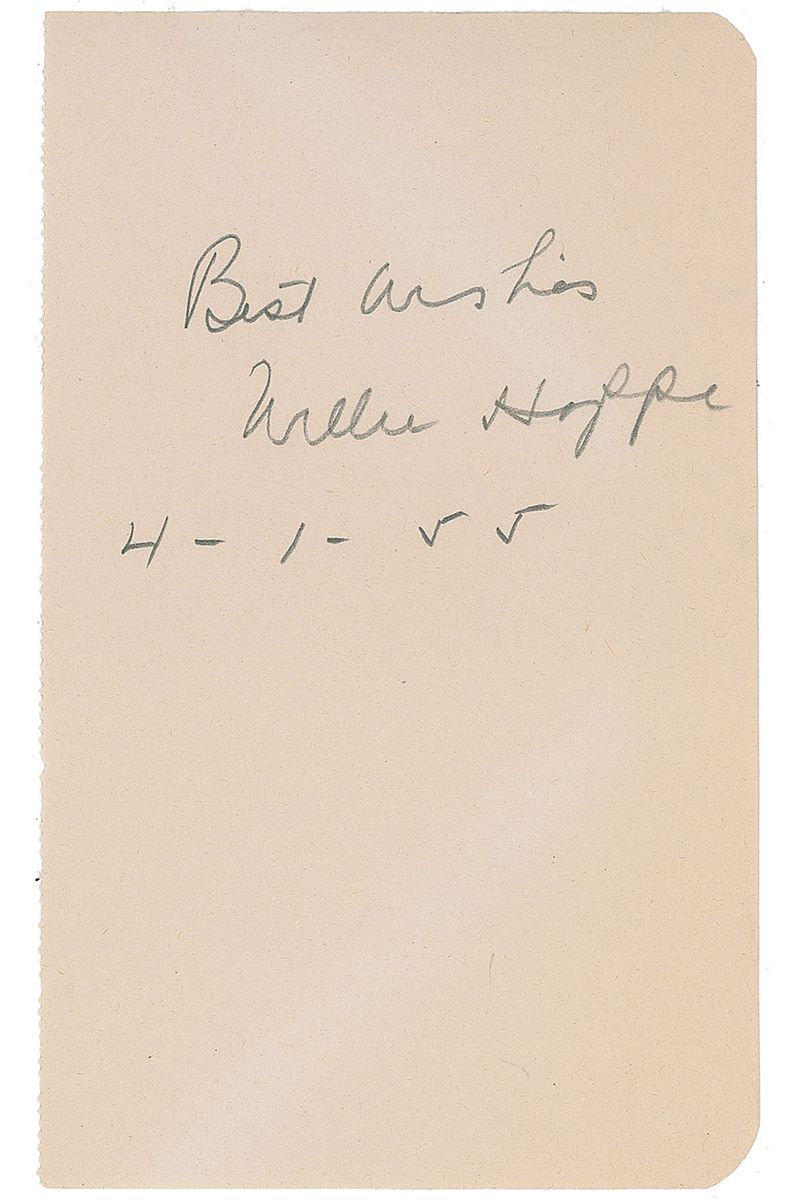 Best Wishes
Willie Hoppe
4-1-55